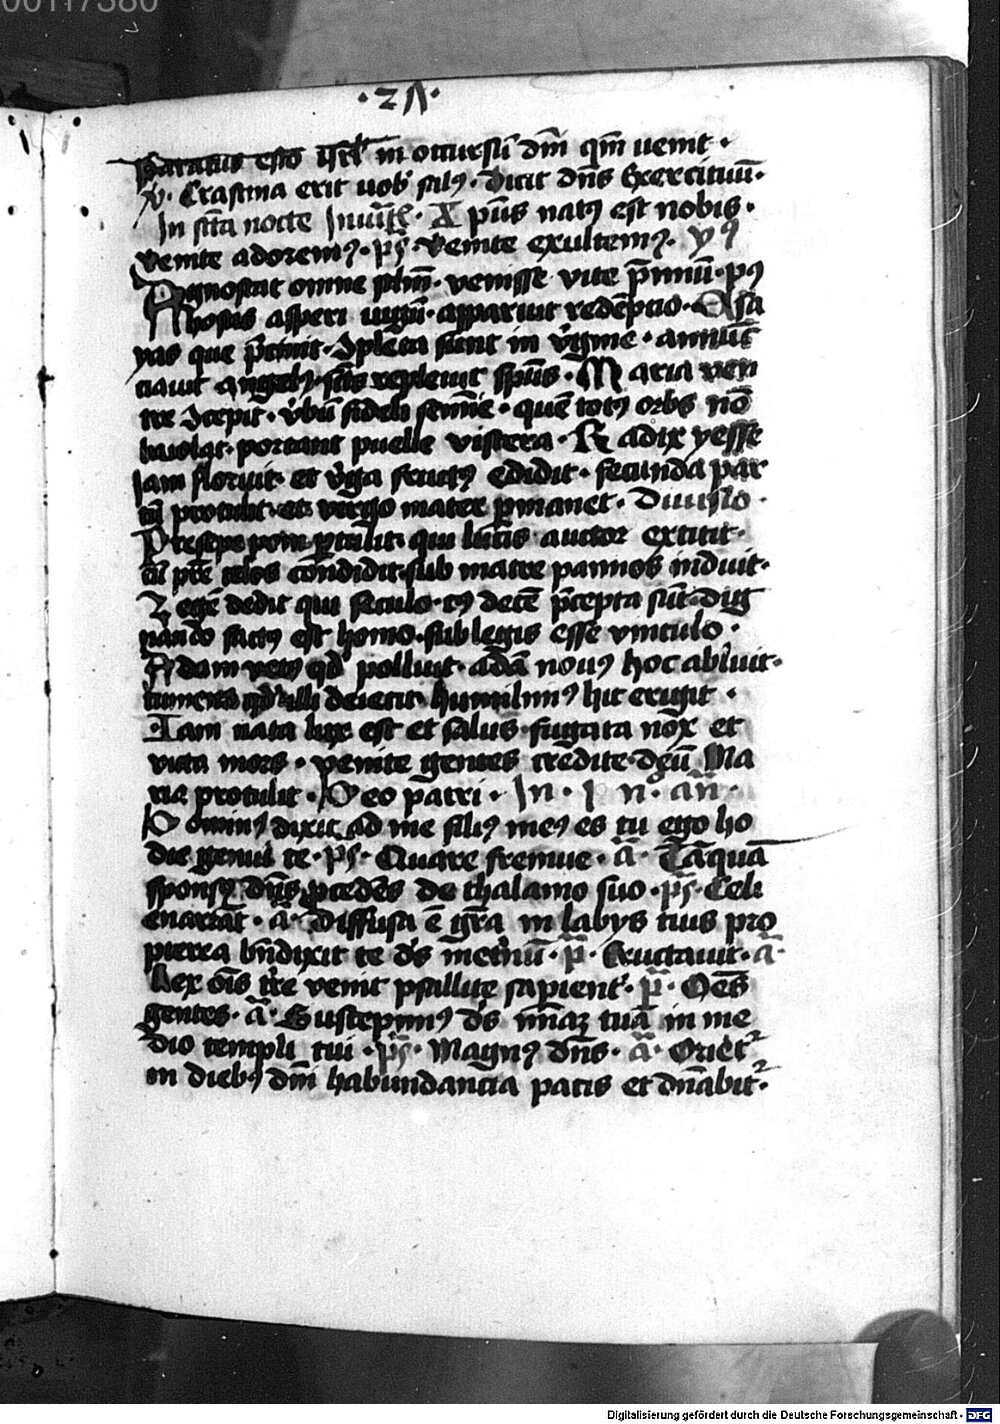 00117380
· 27 ·
Paratus esto isrl' in occursū dn̄i qm̄ uenit ·
v̄ · Crastina erit uob' salꝰ · dicit dn̄s Exercituū ·
In sc̄ta nocte · Xpūs natꝰ est nobis ·
venite adoremꝰ · ps̄ · Venite exultemꝰ · ym̄ꝰ
Agnoscat omne sclm̄ · venisse vite p̄miū · pꝰ
hostis asperi iugū · apparuit redēptio · Esa
yas que p̄cinit · Ipleta sunt in v̓gine · annūc
ciauit angelꝰ · sc̄s repleuit spūs · Maria ven
tre 2cepit · v̓bū fideli semīe · quē totꝰ orbs nō
baiolat · portant puelle viscera · Radix yesse
Iam floruit · et v̓ga fructꝰ edidit · fecunda par
tū protulit · et virgo mater p̄manet · Diuisio ·
Presepe poni ptulit · qui lucis auctor extitit ·
cū pr̄e celos condidit · sub matre pannos induit ·
Legē dedit qui seculo · cꝰ decē p̄cepta sūt · dig
nando factꝰ est homo · sub legis esse vinculo ·
Adam vetꝰ qd' polluit · adā nouꝰ hoc abluit ·
tumens qd' illi deiecit · humilimꝰ hic erigit ·
Iam nata lux est et salus · fugata nox et
victa mors · venite gentes credite · deū Ma
ria protulit · Deo patri · In · I · n̄ · an̄ ·
Dominꝰ dixit ad me filiꝰ meꝰ es tu ego ho
die genui te · ps̄ · Quare fremue · ā · Tāquā
sponsꝰ dn̄s p̄cedēs de thalamo suo · ps̄ · Celi
enarrāt · ā · Diffusa ē gr̄a in labys tuis pro
pterea bn̄dixit te ds̄ in et̓nū · p̄ · Eructauit · ā ·
Rex oīs tr̄e venit psallite sapient' · p̄ · Om̄s
gentes · ā · Suscepimꝰ ds̄ mīaꝝ tuā in me
dio templi tui · ps̄ · Magnꝰ dn̄s · ā · Oriet̃
in diebꝰ dn̄i habundancia pacis et dn̄abit̃ ·
Digitalisierung gefördert durch die Deutsche Forschungsgemeinschaft - DFG